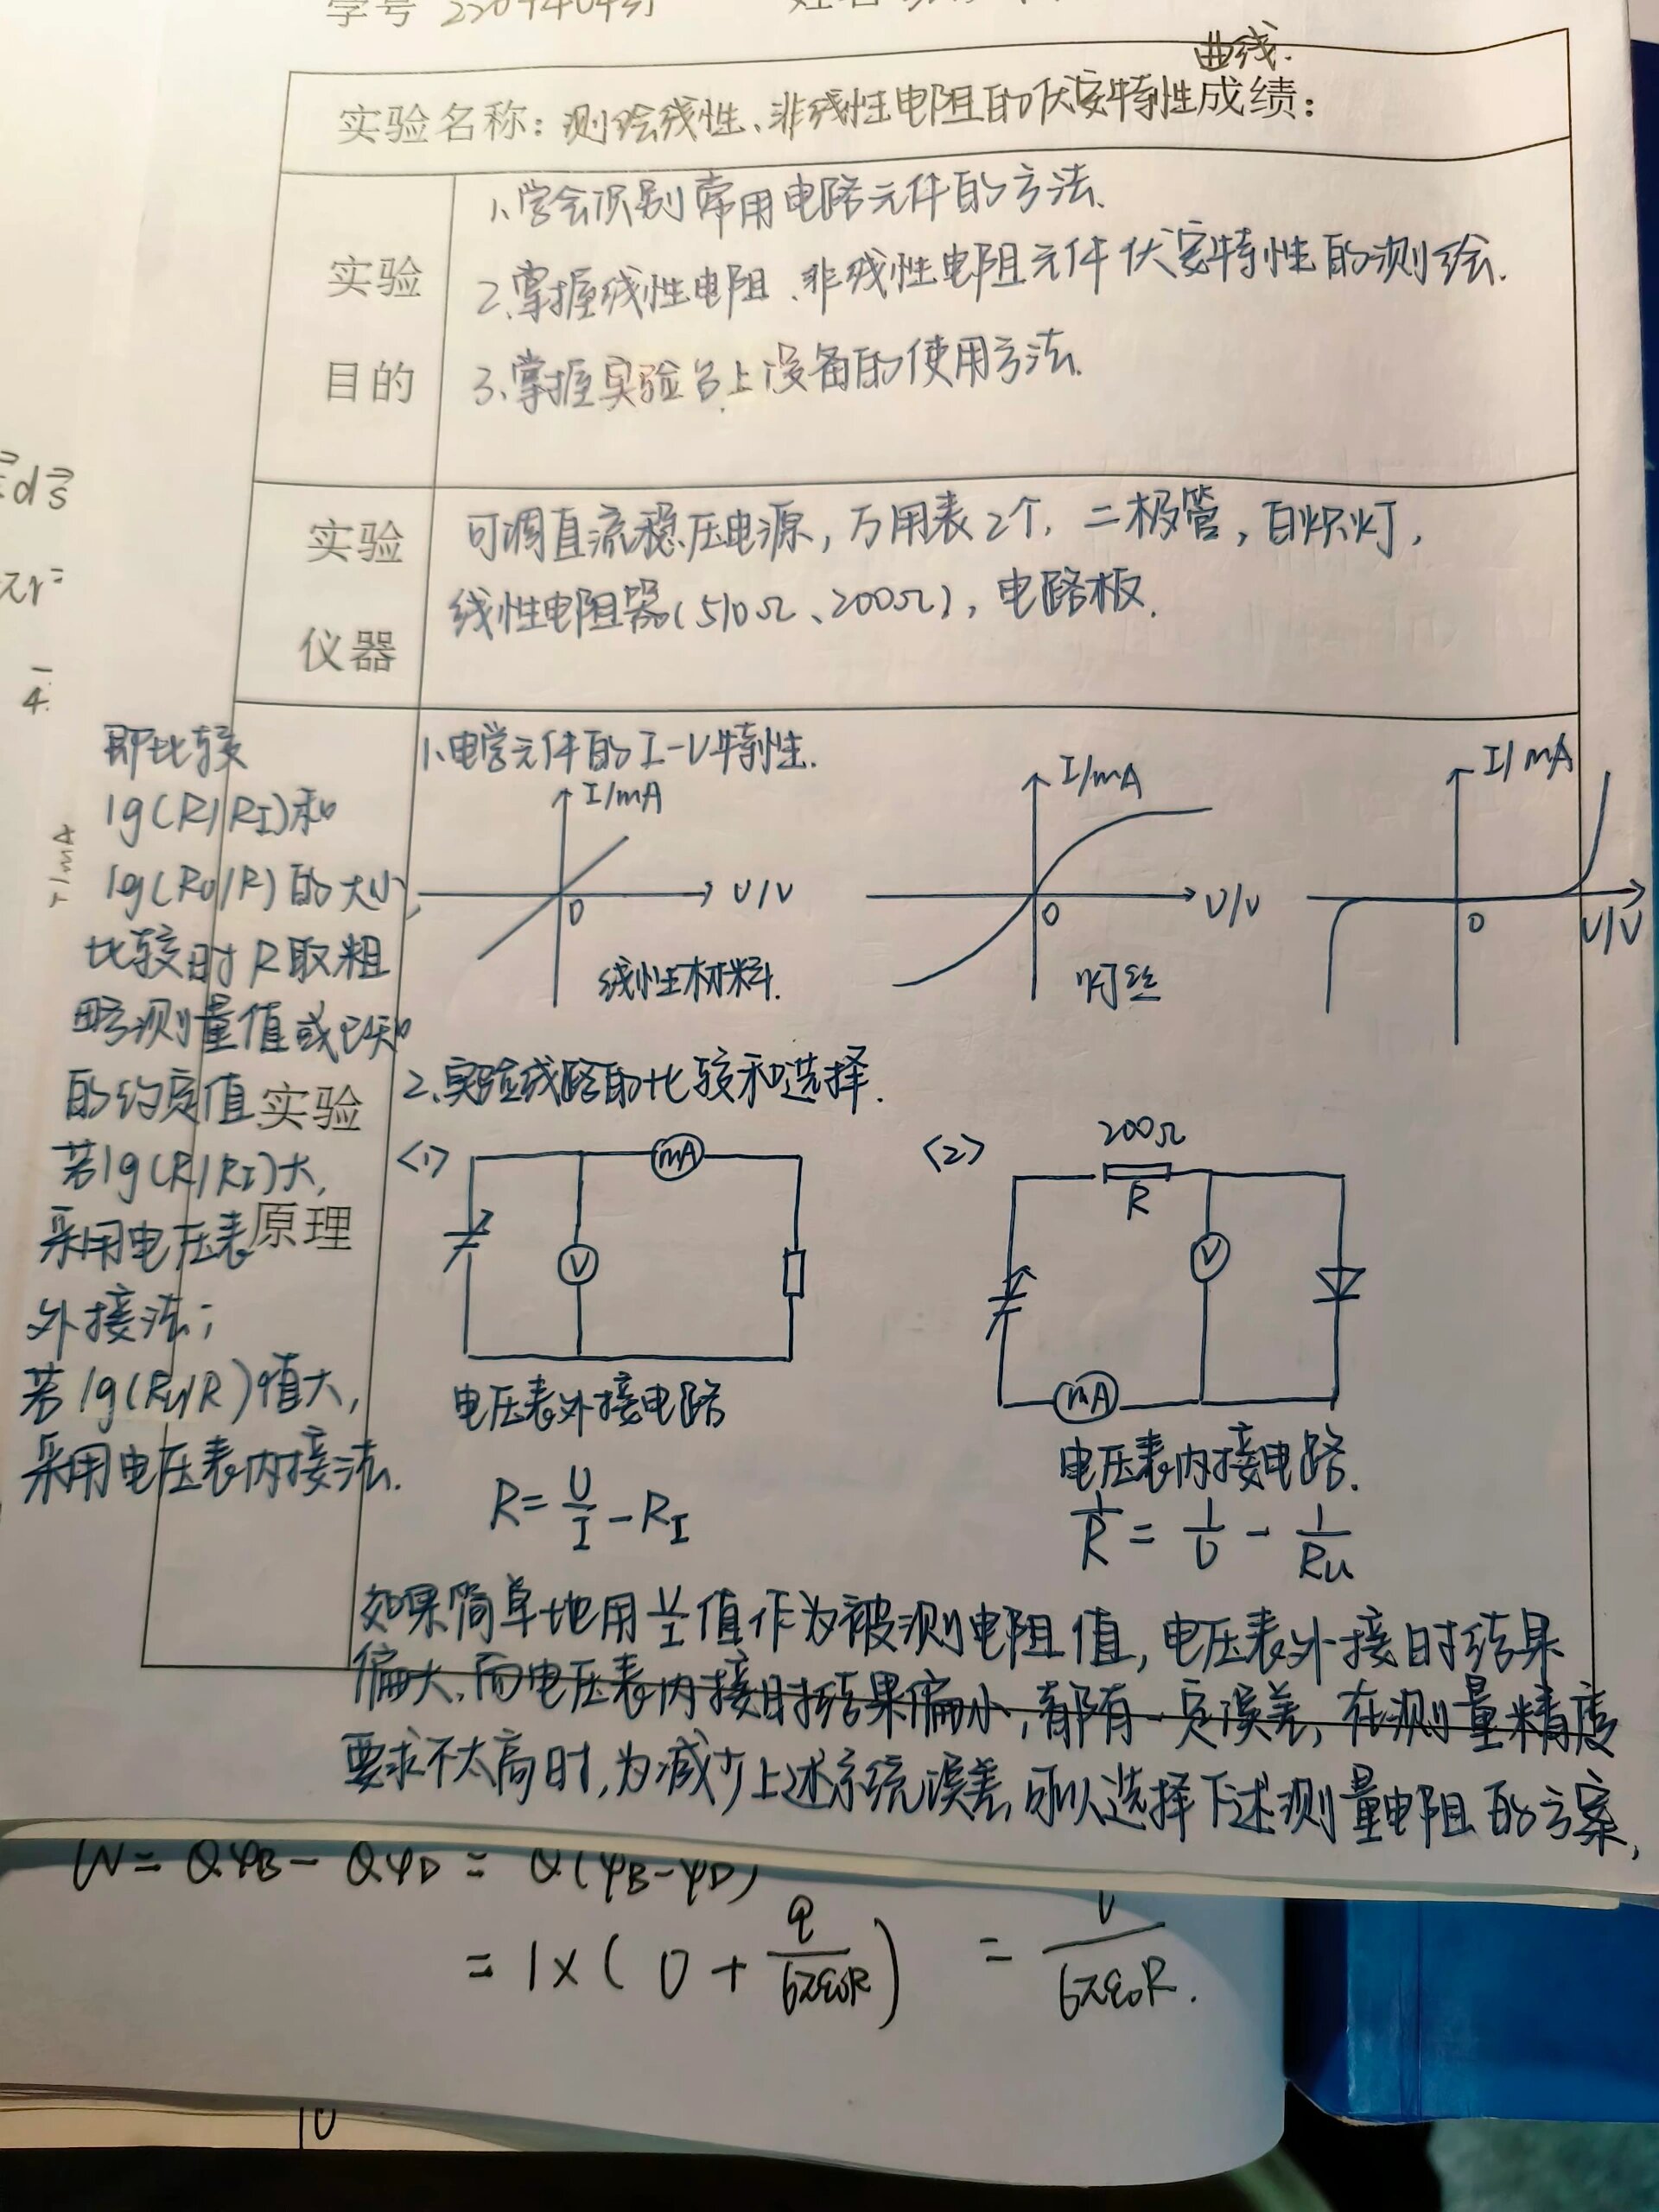 学号
曲线.
实验名称：测绘线性、非线性电阻的伏安特性成绩：
实验
目的
1、学会识别常用电路元件的方法.
2、掌握线性电阻、非线性电阻元件伏安特性的测绘.
3、掌握实验台上设备的使用方法.
实验
仪器
可调直流稳压电源，万用表2个，二极管，白炽灯，
线性电阻器（510Ω、200Ω），电路板.
实验
原理
1、电学元件的I-V特性.
I/mA
U/V
0
线性材料.
I/mA
U/V
0
灯丝
I/mA
U/V
0
2、实验线路的比较和选择.
<1>
mA
V
电压表外接电路
R=U/I-R_I
<2>
200Ω
R
V
mA
电压表内接电路.
1/R=1/U-1/Ru
如果简单地用V/I值作为被测电阻值，电压表外接时结果
偏大，而电压表内接时结果偏小，都有一定误差，在测量精度
要求不太高时，为减少上述系统误差，可以选择下述测量电阻的方案，
即比较
lg(R/R_I)和
lg(Ru/R)的大小，
比较时R取粗
略测量值或已知
的约定值
若lg(R/R_I)大，
采用电压表
外接法；
若lg(Ru/R)值大，
采用电压表内接法.
ds
πr²
4.
I/mA
W=QφB-QφD=Q(φB-φD)
=1×(0+q/6πε₀R)
6πε₀R.
10